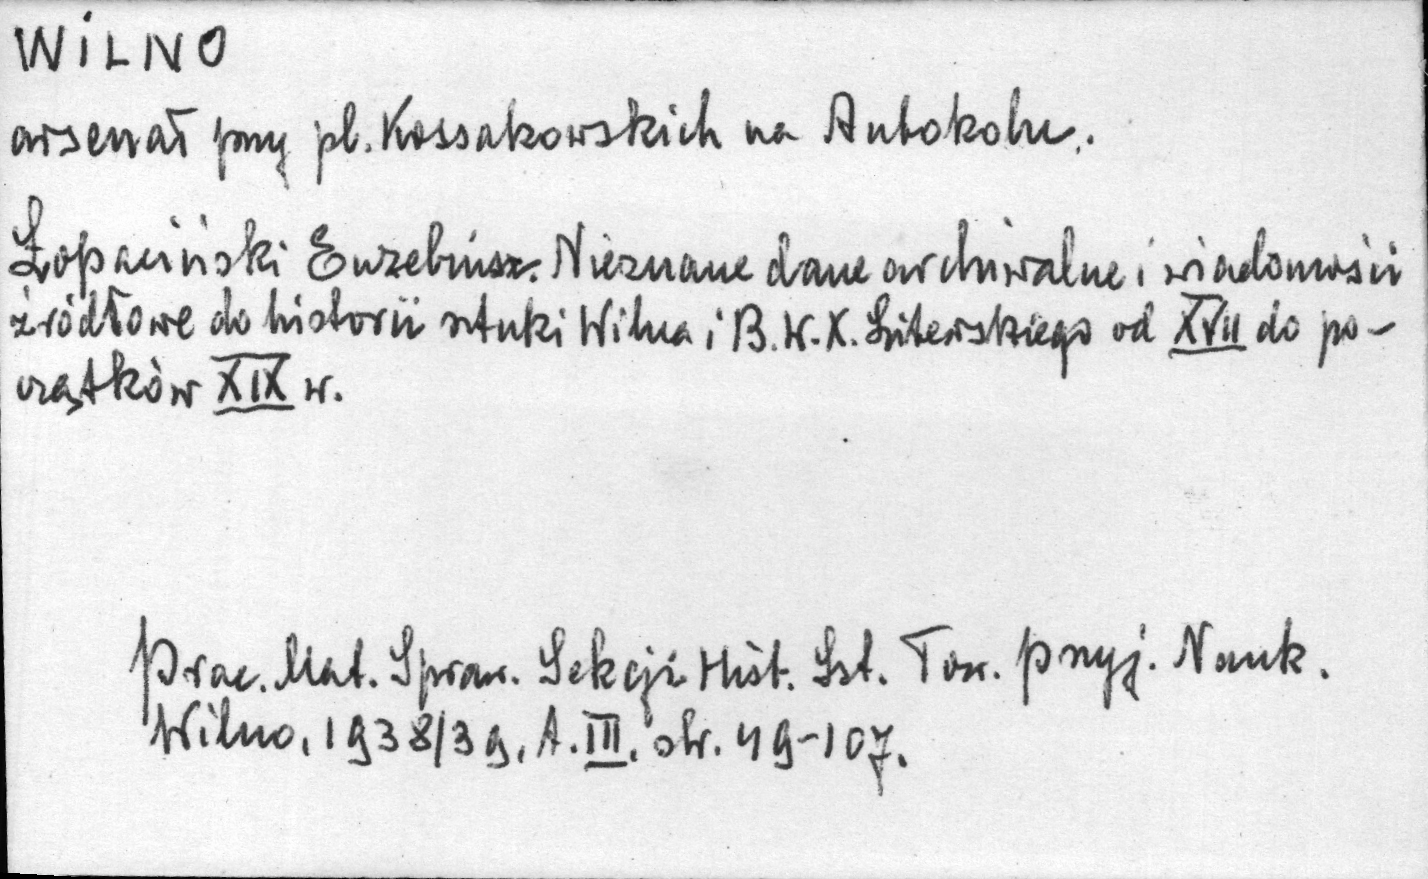 WILNO
arsenał przy pl. Kossakowskich na Antokolu.
Łopaciński Euzebiusz. Nieznane dane archiwalne i wiadomości
źródłowe do historii sztuki Wilna i B. W. X. Litewskiego od XVII do po-
czątków XIX w.
Prac. Mat. Spraw. Sekcji Hist. Szt. Tow. Przyj. Nauk.
Wilno, 1938/39, t. III, str. 49-107.